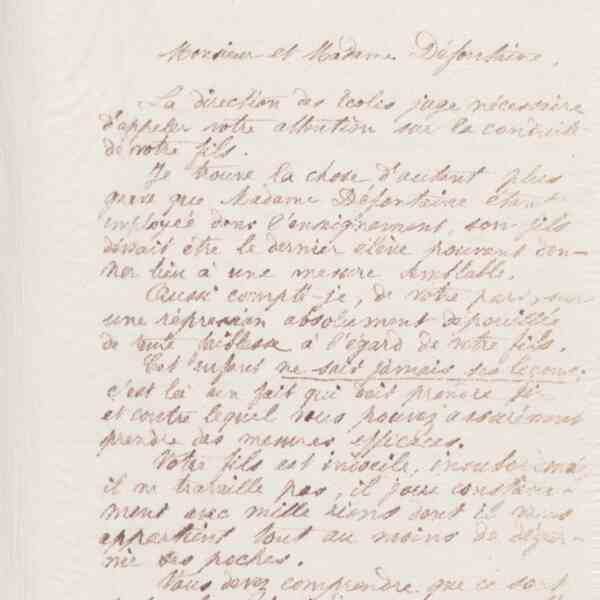 Monsieur et Madame Défontaine,
La direction des Ecoles juge nécessaire
d'appeler votre attention sur la conduite
de votre fils.
Je trouve la chose d'autant plus
grave que Madame Défontaine étant
employée dans l'enseignement, son fils
devait être le dernier élève pouvant don-
ner lieu à une mesure semblable.
Aussi compté-je, de votre part, sur
une répression absolument dépouillée
de toute faiblesse à l'égard de votre fils.
Cet enfant ne sait jamais ses leçons,
c'est là un fait qui doit prendre fin
et contre lequel vous pouvez assurément
prendre des mesures efficaces.
Votre fils est indocile, insubordonné,
il ne travaille pas, il joue constam-
ment avec mille riens dont il vous
appartient tout au moins de dégar-
nir ses poches.
Vous devez comprendre que ce sont